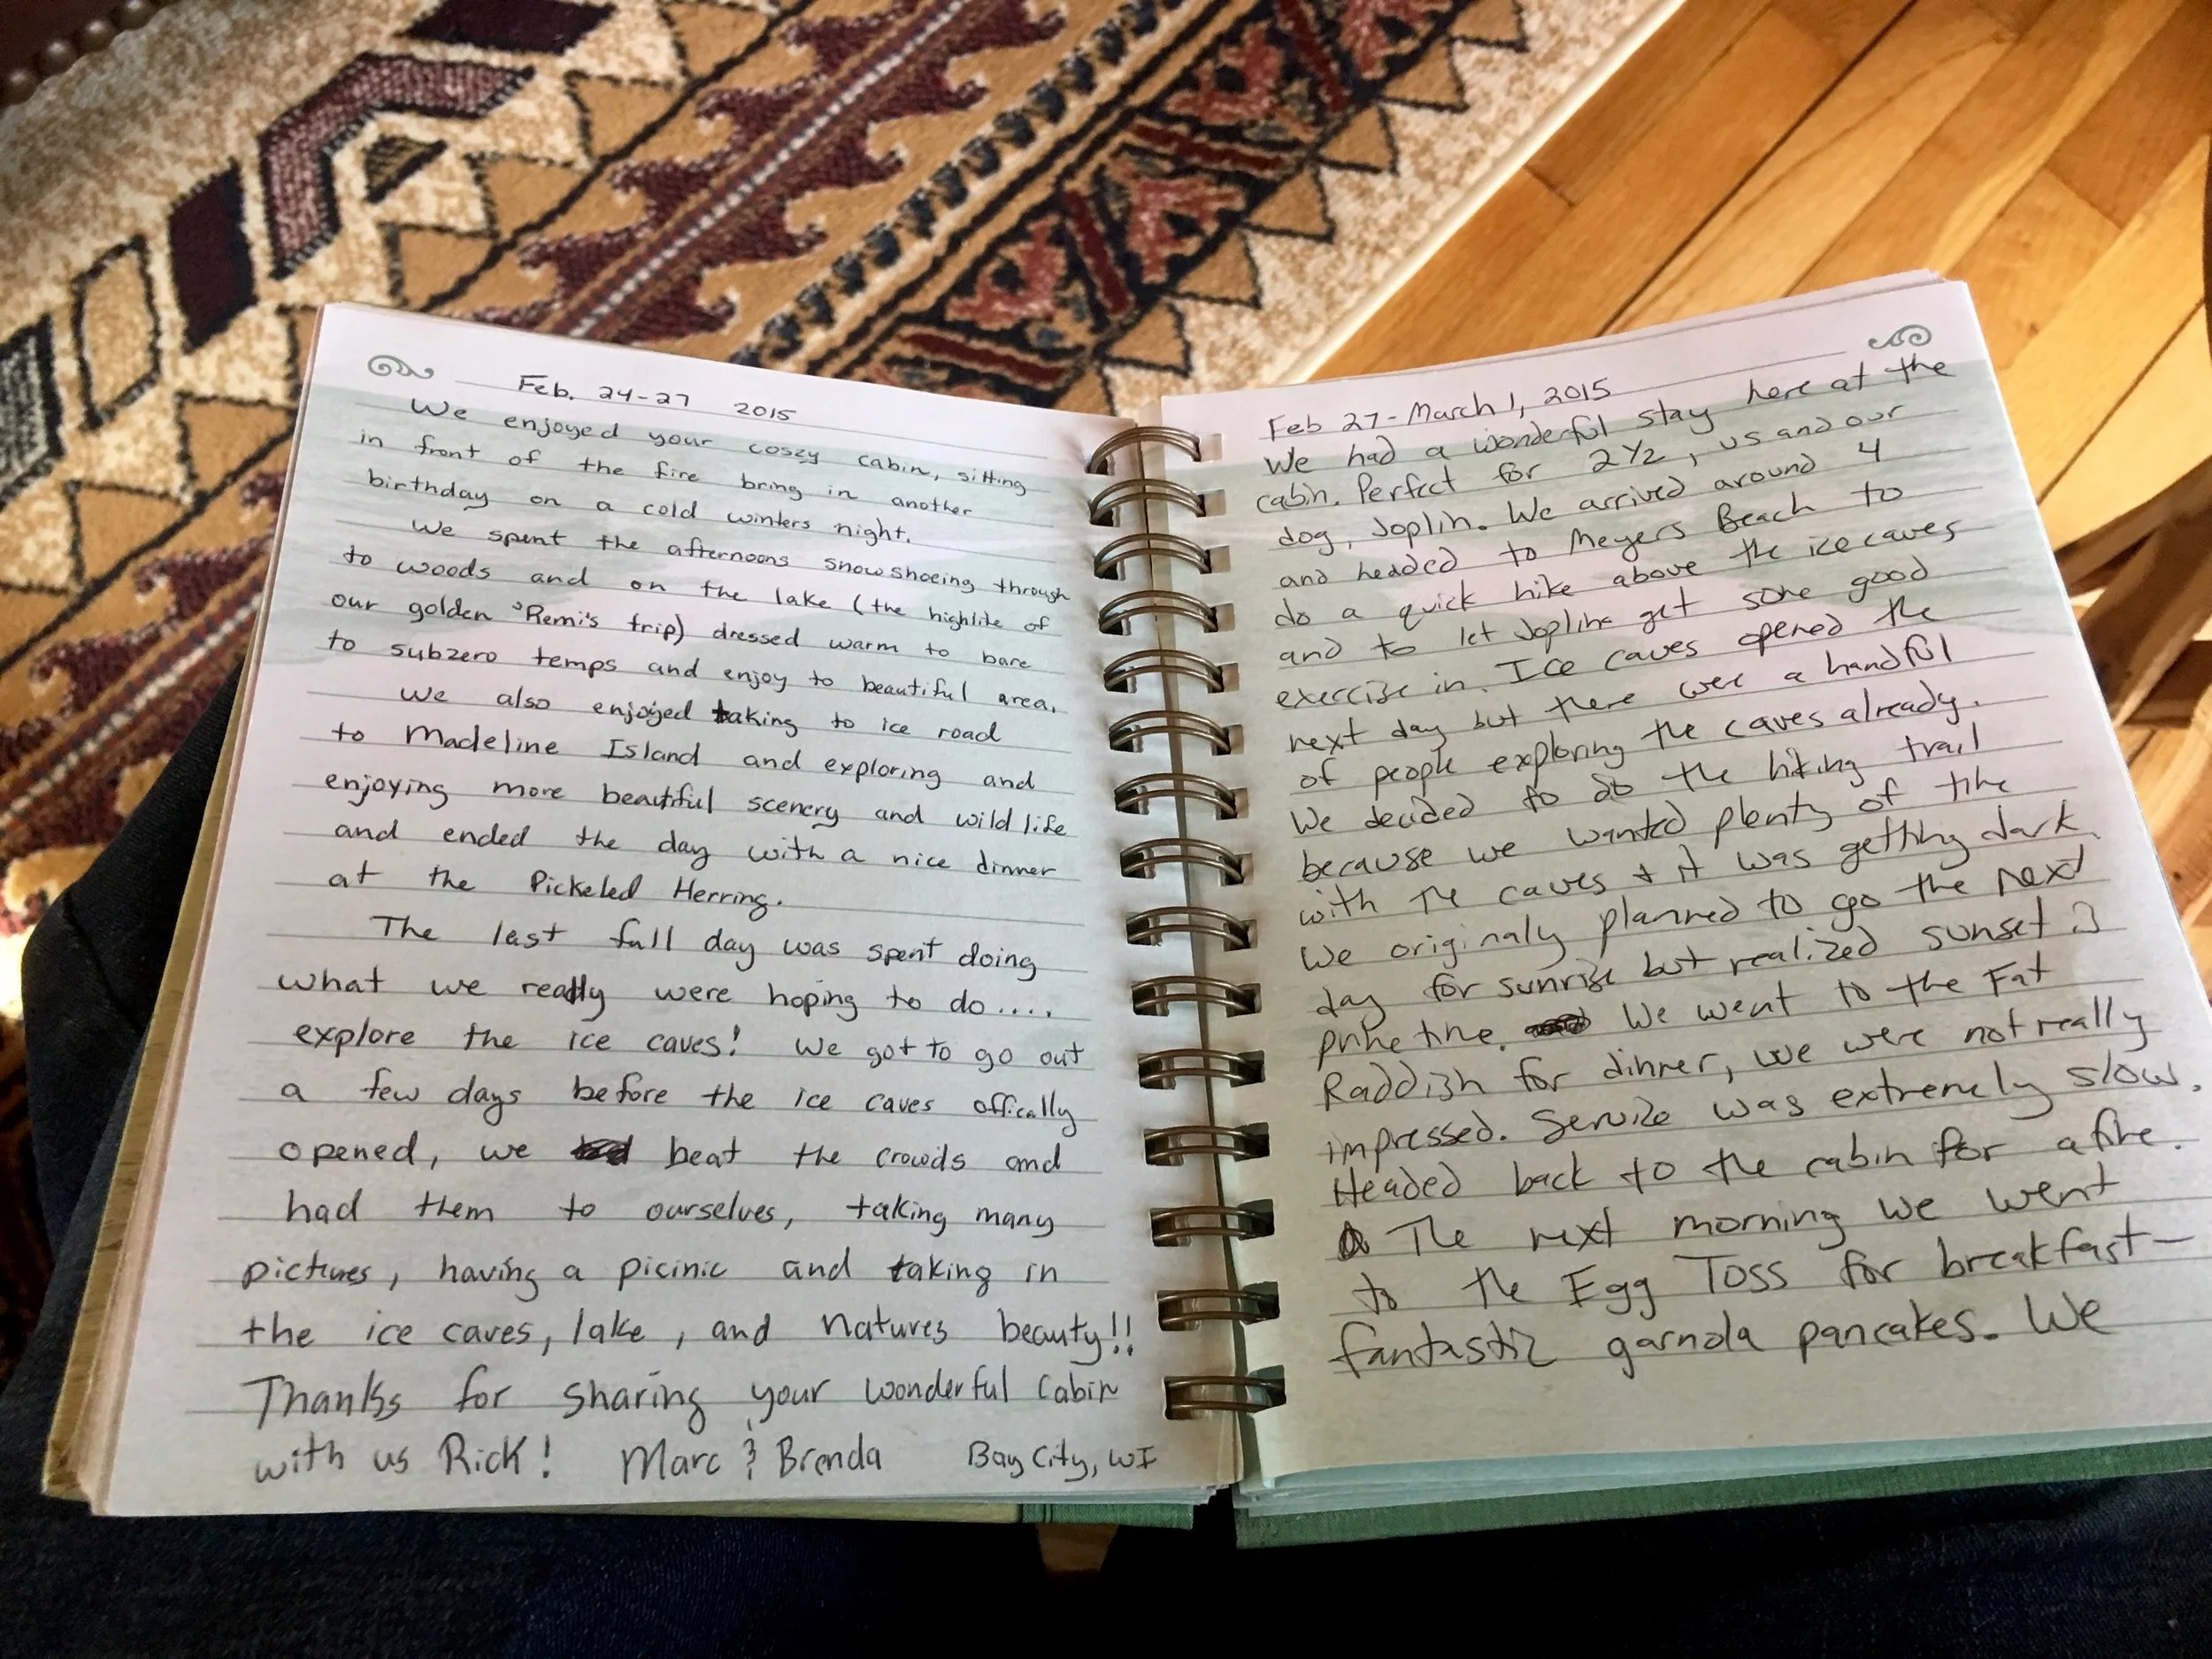 Feb. 24-27 2015
We enjoyed your coszy cabin, sitting
in front of the fire bring in another
birthday on a cold winters night.
We spent the afternoons snowshoeing through
to woods and on the lake (the highlite of
our golden 'Remi's trip) dressed warm to bare
to subzero temps and enjoy to beautiful area.
We also enjoyed taking to ice road
to Madeline Island and exploring and
enjoying more beautiful scenery and wild life
and ended the day with a nice dinner
at the Pickeled Herring.
The last full day was spent doing
what we really were hoping to do....
explore the ice caves! We got to go out
a few days before the ice caves offically
opened, we beat the crowds and
had them to ourselves, taking many
pictures, having a picinic and taking in
the ice caves, lake, and natures beauty!!
Thanks for sharing your wonderful Cabin
with us Rick! Marc & Brenda Bay City, WI
Feb 27-March 1, 2015
We had a wonderful stay here at the
cabin. Perfect for 2 1/2, us and our
dog, Joplin. We arrived around 4
and headed to Meyers Beach to
do a quick hike above the ice caves
and to let Joplin get some good
exercise in. Ice caves opened the
next day but there were a handful
of people exploring the caves already.
We decided to do the hiking trail
because we wanted plenty of time
with the caves + it was getting dark.
We originaly planned to go the next
day for sunrise but realized sunset is
prime time. We went to the Fat
Raddish for dinner, we were not really
impressed. Service was extremely slow.
Headed back to the cabin for a fire.
The next morning we went
to the Egg Toss for breakfast—
fantastic garnola pancakes. We